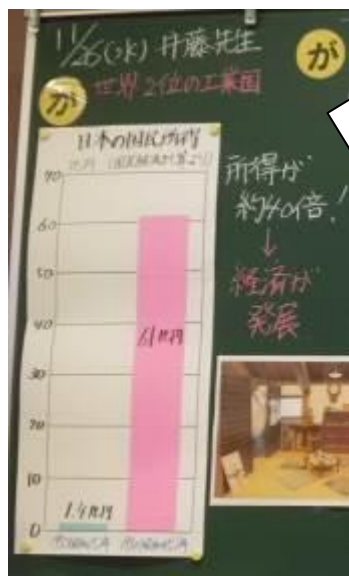 11/26(水) 井藤先生
が
が
世界2位の工業国
日本の国民所得
70
60
50
40
30
20
10
0
61兆円
1.4兆円
所得が
約40倍!
↓
経済が
発展